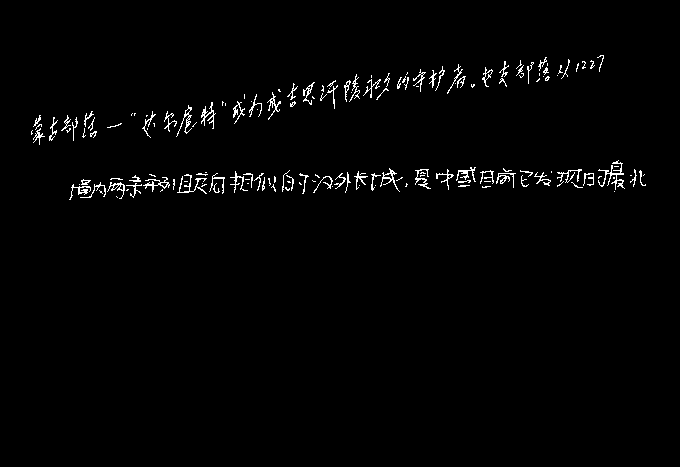 蒙古部落—“达尔扈特”成为成吉思汗陵永久的守护者。这支部落从1227
境内两条平列且走向相似的汉外长城,是中国目前已发现的最北